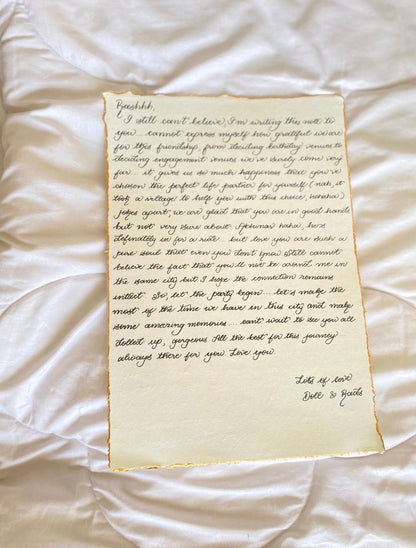 I still can't believe, I'm writing this note to
you cannot express myself how grateful we are
for this friendship, from deciding birthday venues to
deciding engagement venues we've surely come very
far.. it gives us so much happiness that you've
chosen the perfect life partner for yourself (nah, it
took a village to help you with this choice, hahaha)
jokes apart, we are glad that you are in good hands
but not very sure about haha, he's
definitely in for a ride but love you are such a
pure soul that even you don't know still cannot
believe the fact that you'll not be around me in
the same city but I hope the connection remains
intact So, let the party begin.... let's make the
most of the time we have in this city and make
some amazing memories.... can't wait to see you all
dolled up, gorgeous All the best for this journey
always there for you Love you.
Lots of love
Doll &